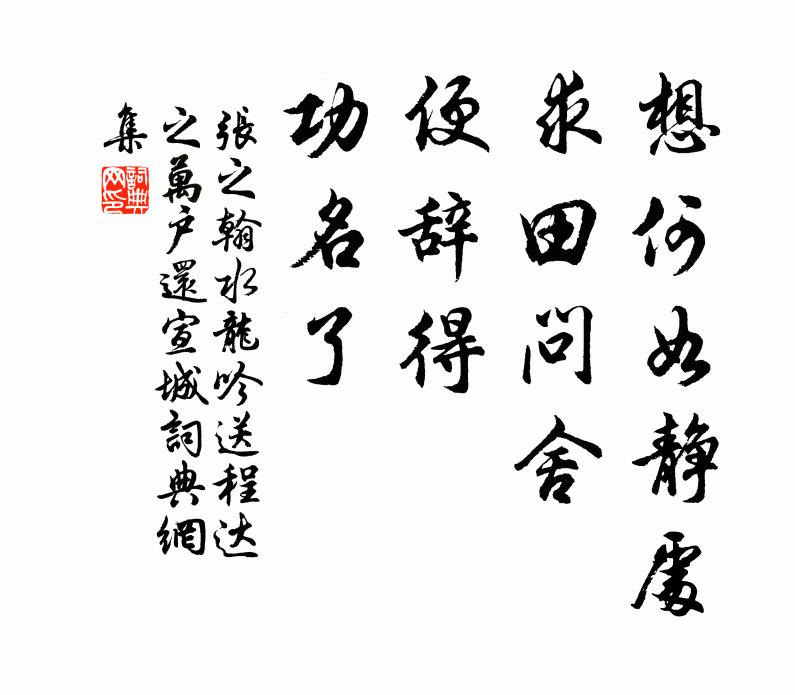 想何如静處
求田問舍
便辞得
功名了
張之翰水龍吟送程达
之萬户還宣城詞典網
集
詞典
网印